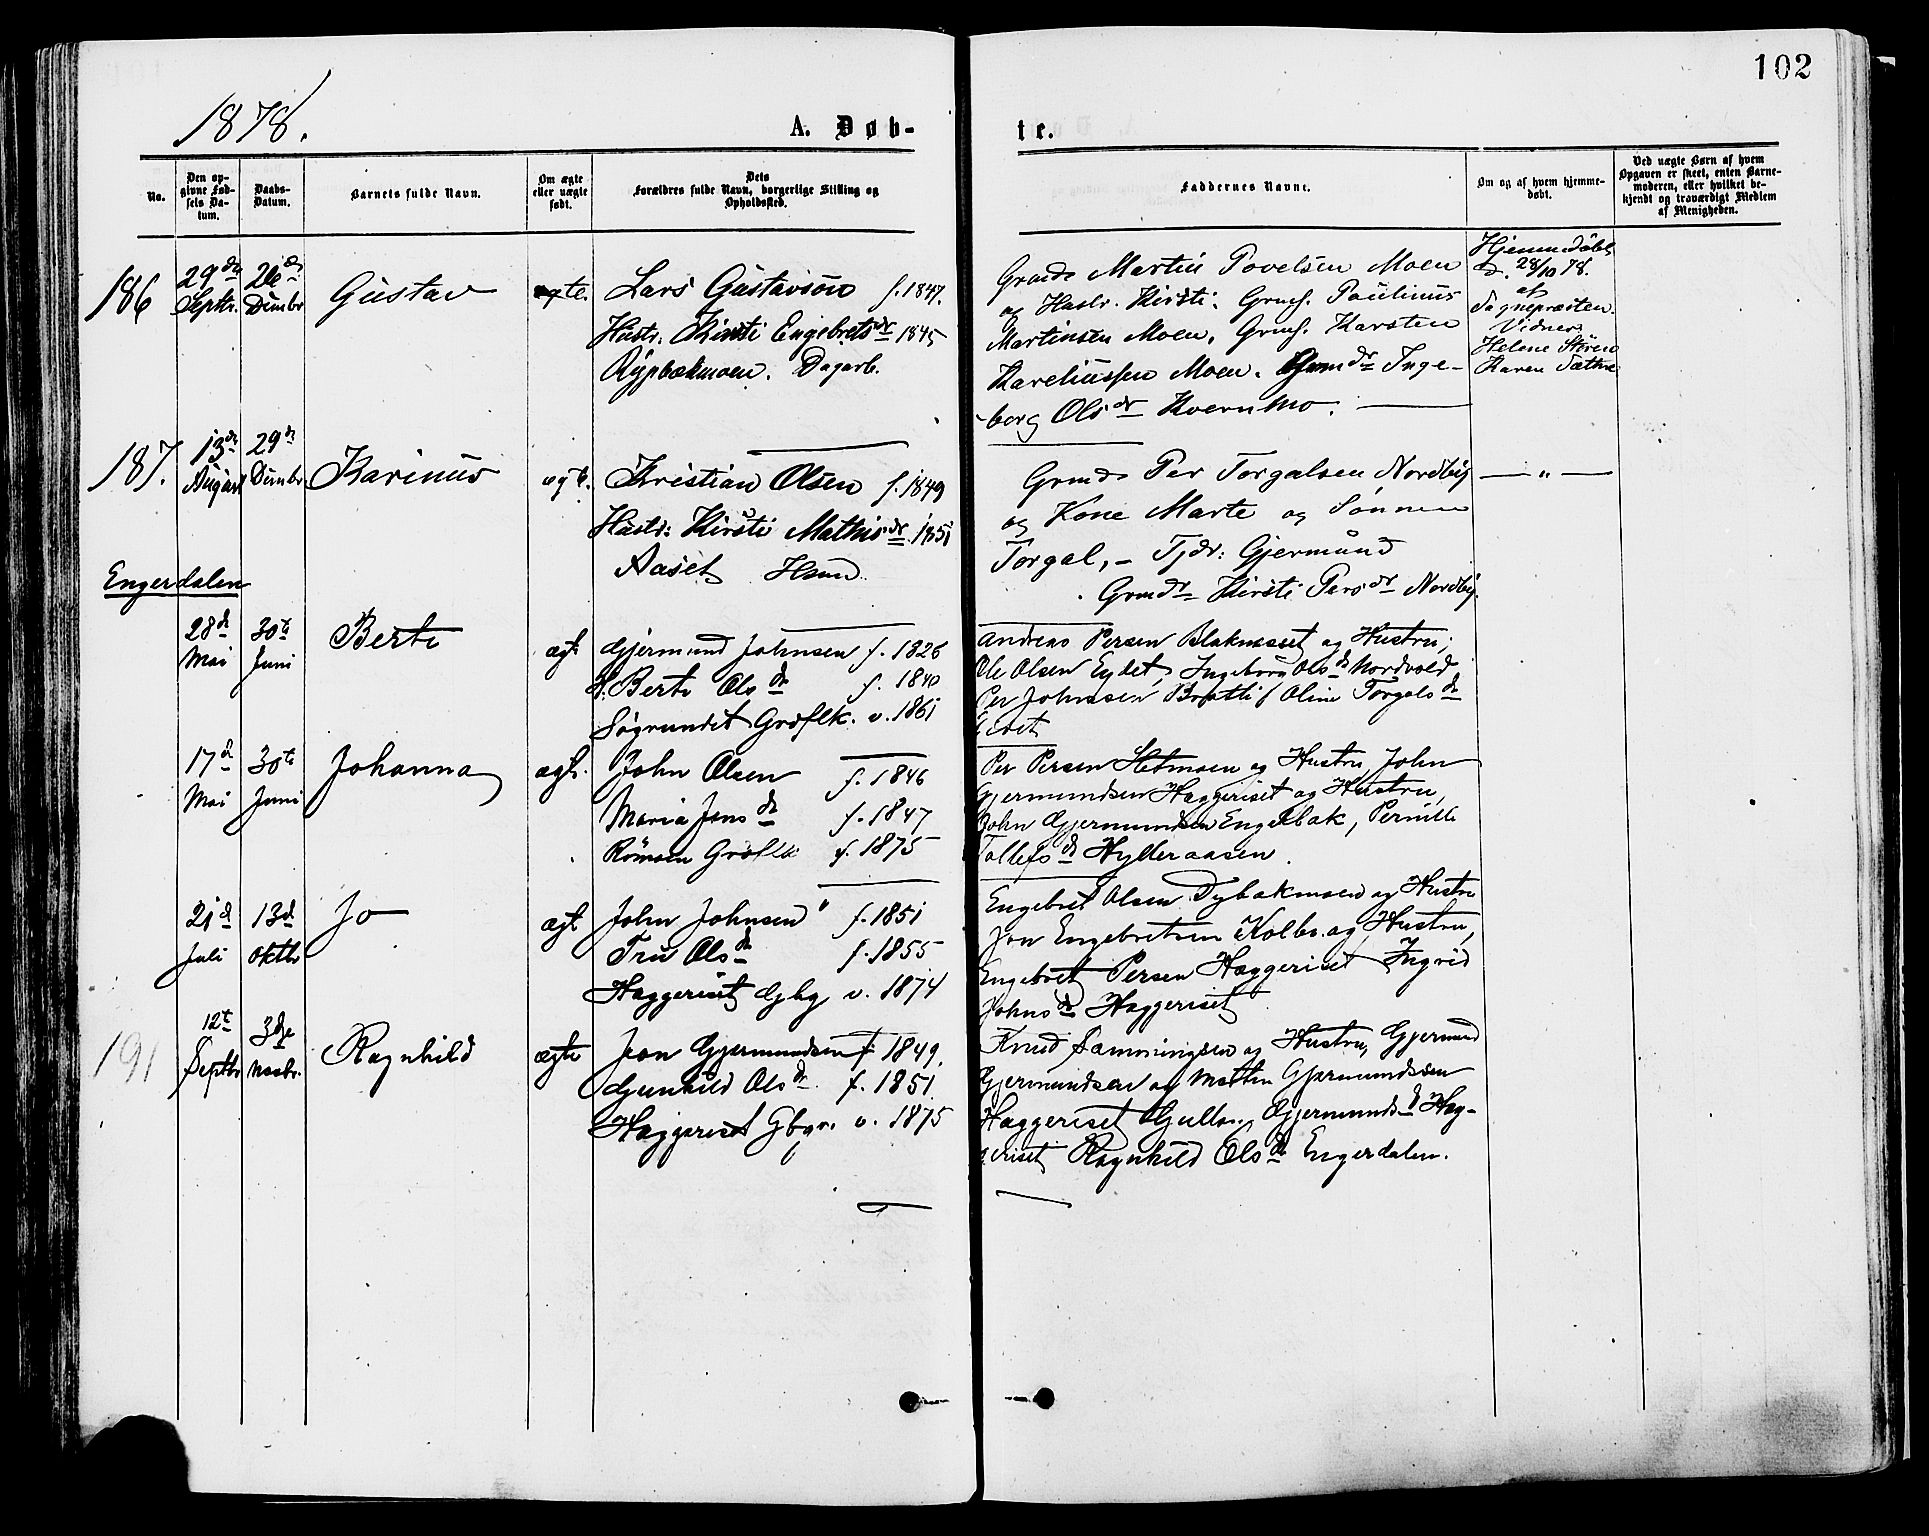 102
1878.
A. Døb-
te.
No.
Den op-
givne Fød-
sels Da-
tum.
Daabs-
Datum.
Barnets fulde Navn.
Om ægte
eller uægte
født.
Dets
Forældres fulde Navn, borgerlige Stilling og
Opholdssted.
Faddernes Navne.
Om og af hvem hjemme-
døbt.
Ved uægte Børn af hvem
Opgaven er skeet, enten Barne-
moderen, eller hvilket be-
kjendt og troværdigt Medlem
af Menigheden.
186
29de
Septr.
26de
Dcmbr
Gustav
ægte.
Lars Gustavson f. 1847.
Hustr. Kirsti Engebretsdr 1845
Rypbækmoen. Dagarb.
Grmds Martin Povelsen Moen
og Hustr. Kirsti. Grmf. Paulinus
Martinsen Moen, Grmf. Karsten
Kareliussen Moen. Grmdr Inge-
borg Olsdr Kvernmo.
Hjemmedøbt
d. 28/10 78.
af
Sognepræsten.
Vidner
Helene Støren
Karen Sæthre
187.
13de
August
29de
Dcmbr
Karinus
ægte.
Kristian Olsen f. 1849
Hustr: Kirsti Mathisdr. 1851
Aaset Hsmd
Grmds Per Torgalsen Nordby
og Kone Marte og Sønnen
Torgal, - Tjdr: Gjermund
Grmdr Kirsti Persdr Nordby.
— " —
Engerdalen
28de
Mai
30te
Juni
Berte
ægt
Gjermund Johnsen f. 1826
H. Berte Olsdr f. 1840
Søgrundet v. 1861
Andreas Persen og Hustru,
Ole Olsen Eydet, Ingeborg Olsdr Nordvold
Per Johnsen Bratli, Oline Torgalsdr
17de
Mai
30te
Juni
Johanna
ægt.
John Olsen f. 1846
Maria Jonsdr f. 1847
Rømoen v. 1875
Per Persen Hetmoen og Hustru, John
Gjermundsen Haggeriset og Hustru,
John Gjermundsen Engebak, Pernille
Tollefsdr Hylleraasen.
21de
Juli
13de
Oktbr
Jo
ægt
John Johnsen f. 1851
Tru Olsdr f. 1855
Haggeriset Gbg v. 1874
Engebret Olsen Dybakmoen og Hustru
Jon Engebretsen Kolbo og Hustru,
Engebret Persen Haggeriset Ingrid
Johnsdr Haggeriset
191
12te
Septbr
3die
Novbr.
Ragnhild
ægte
Jon Gjermundsen f. 1849.
Gunhild Olsdr. f. 1851.
Haggeriset Gbgr. v. 1875
Knud Sammingsen og Hustru, Gjermund
Gjermundsen og Gjermundssen
Haggeriset Gjermundsd Hag-
geriset Ragnhild Olsdr Engerdalen.